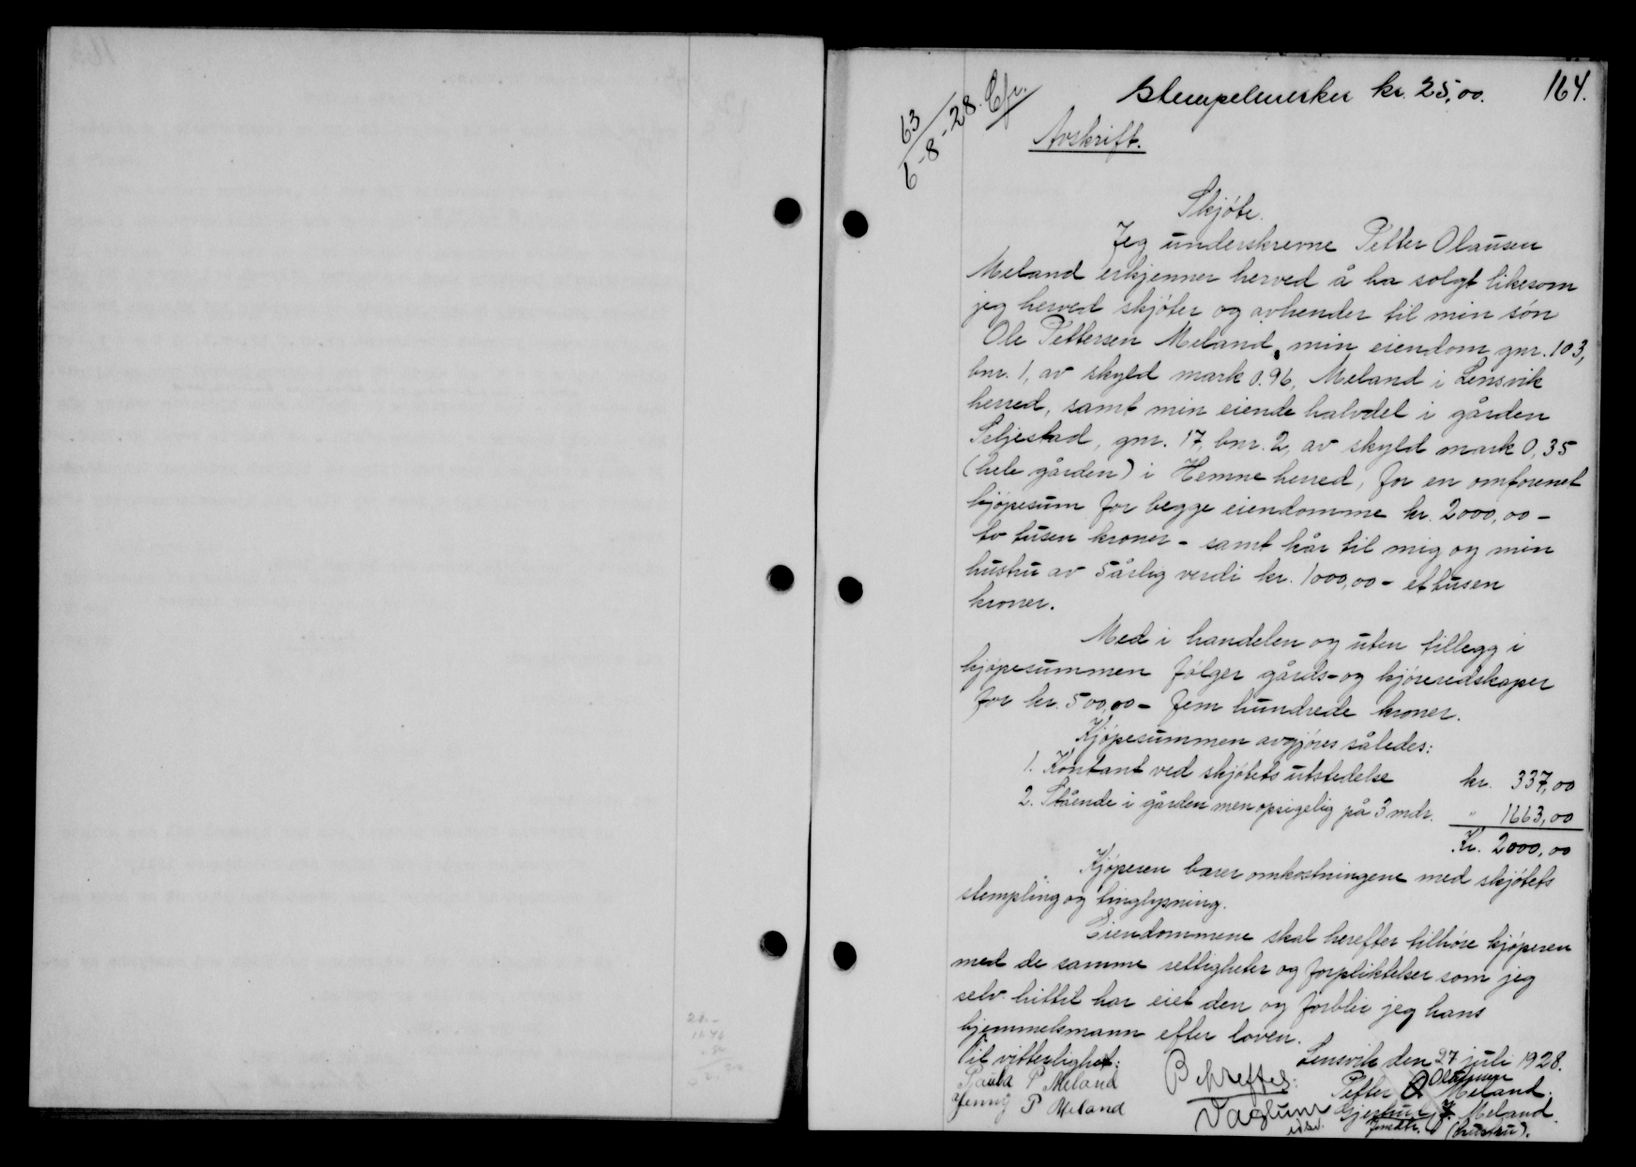 Stempelmerker kr. 25,00. 164.
63/6-8-28. Efr.
Avskrift.
Skjøte.
Jeg underskrevne Petter Olausen
Meland erkjenner herved å ha solgt likesom
jeg herved skjøter og avhender til min søn
Ole Pettersen Meland, min eiendom gnr. 103,
bnr. 1, av skyld mark 0.96, Meland i Lensvik
herred, samt min eiende halvdel i gården
Seljestad, gnr. 17, bnr. 2, av skyld mark 0,35
(hele gården) i Hemne herred, for en omforenet
kjøpesum for begge eiendomme kr. 2000,00 -
to tusen kroner - samt kår til mig og min
hustru av 5 årlig verdi kr. 1000,00 - et tusen
kroner.
Med i handelen og uten tillegg i
kjøpesummen følger gårds- og kjøreredskaper
for kr. 500,00 - fem hundrede kroner.
Kjøpesummen avgjøres således:
1. Kontant ved skjøtets utstedelse kr. 337,00
2. Stående i gården men opsigelig på 3 mdr. " 1663,00
Kr. 2000,00
Kjøperen bærer omkostningene med skjøtets
stempling og tinglysning.
Eiendommene skal herefter tilhøre kjøperen
med de samme rettigheter og forpliktelser som jeg
selv hittil har eiet den og forblir jeg hans
hjemmelsmann efter loven.
Lensvik den 27 juli 1928.
Til vitterlighet:
Paula P Meland
Jenny P Meland
Bekreftes:
Vaglum
Olausen
Petter O Meland.
Gjertru J. Meland.
(hustru).